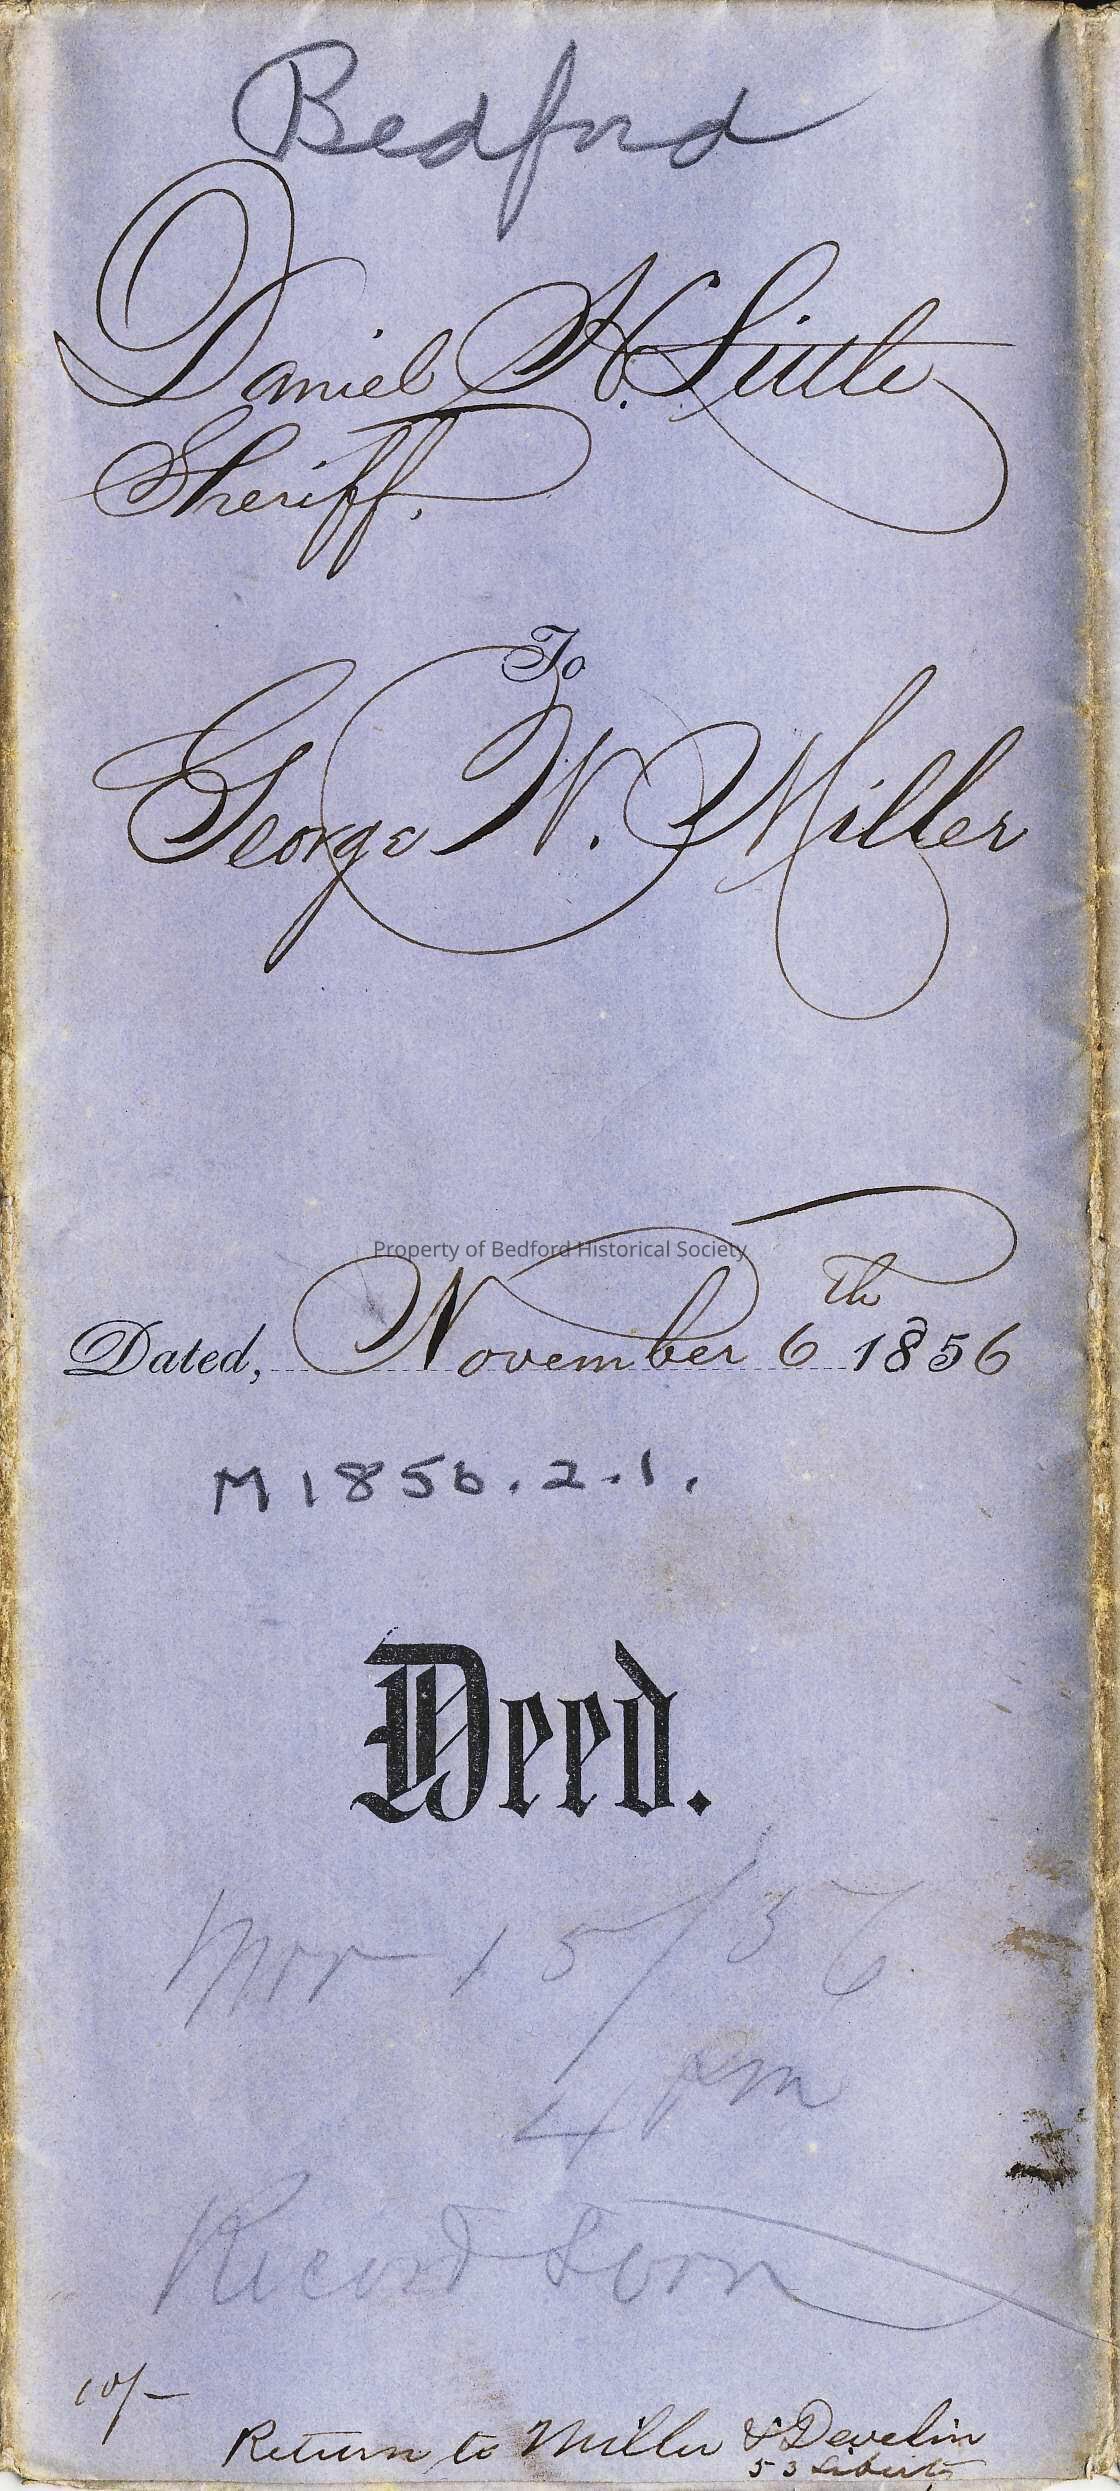 Bedford
Daniel H. Little
Sheriff.
To
George W. Miller
Property of Bedford Historical Society
Dated, November 6th 1856
M1856.2.1.
Deed.
15/56
4 pm
Record Soon
10/-
Return to Miller & Develin
53 Liberty